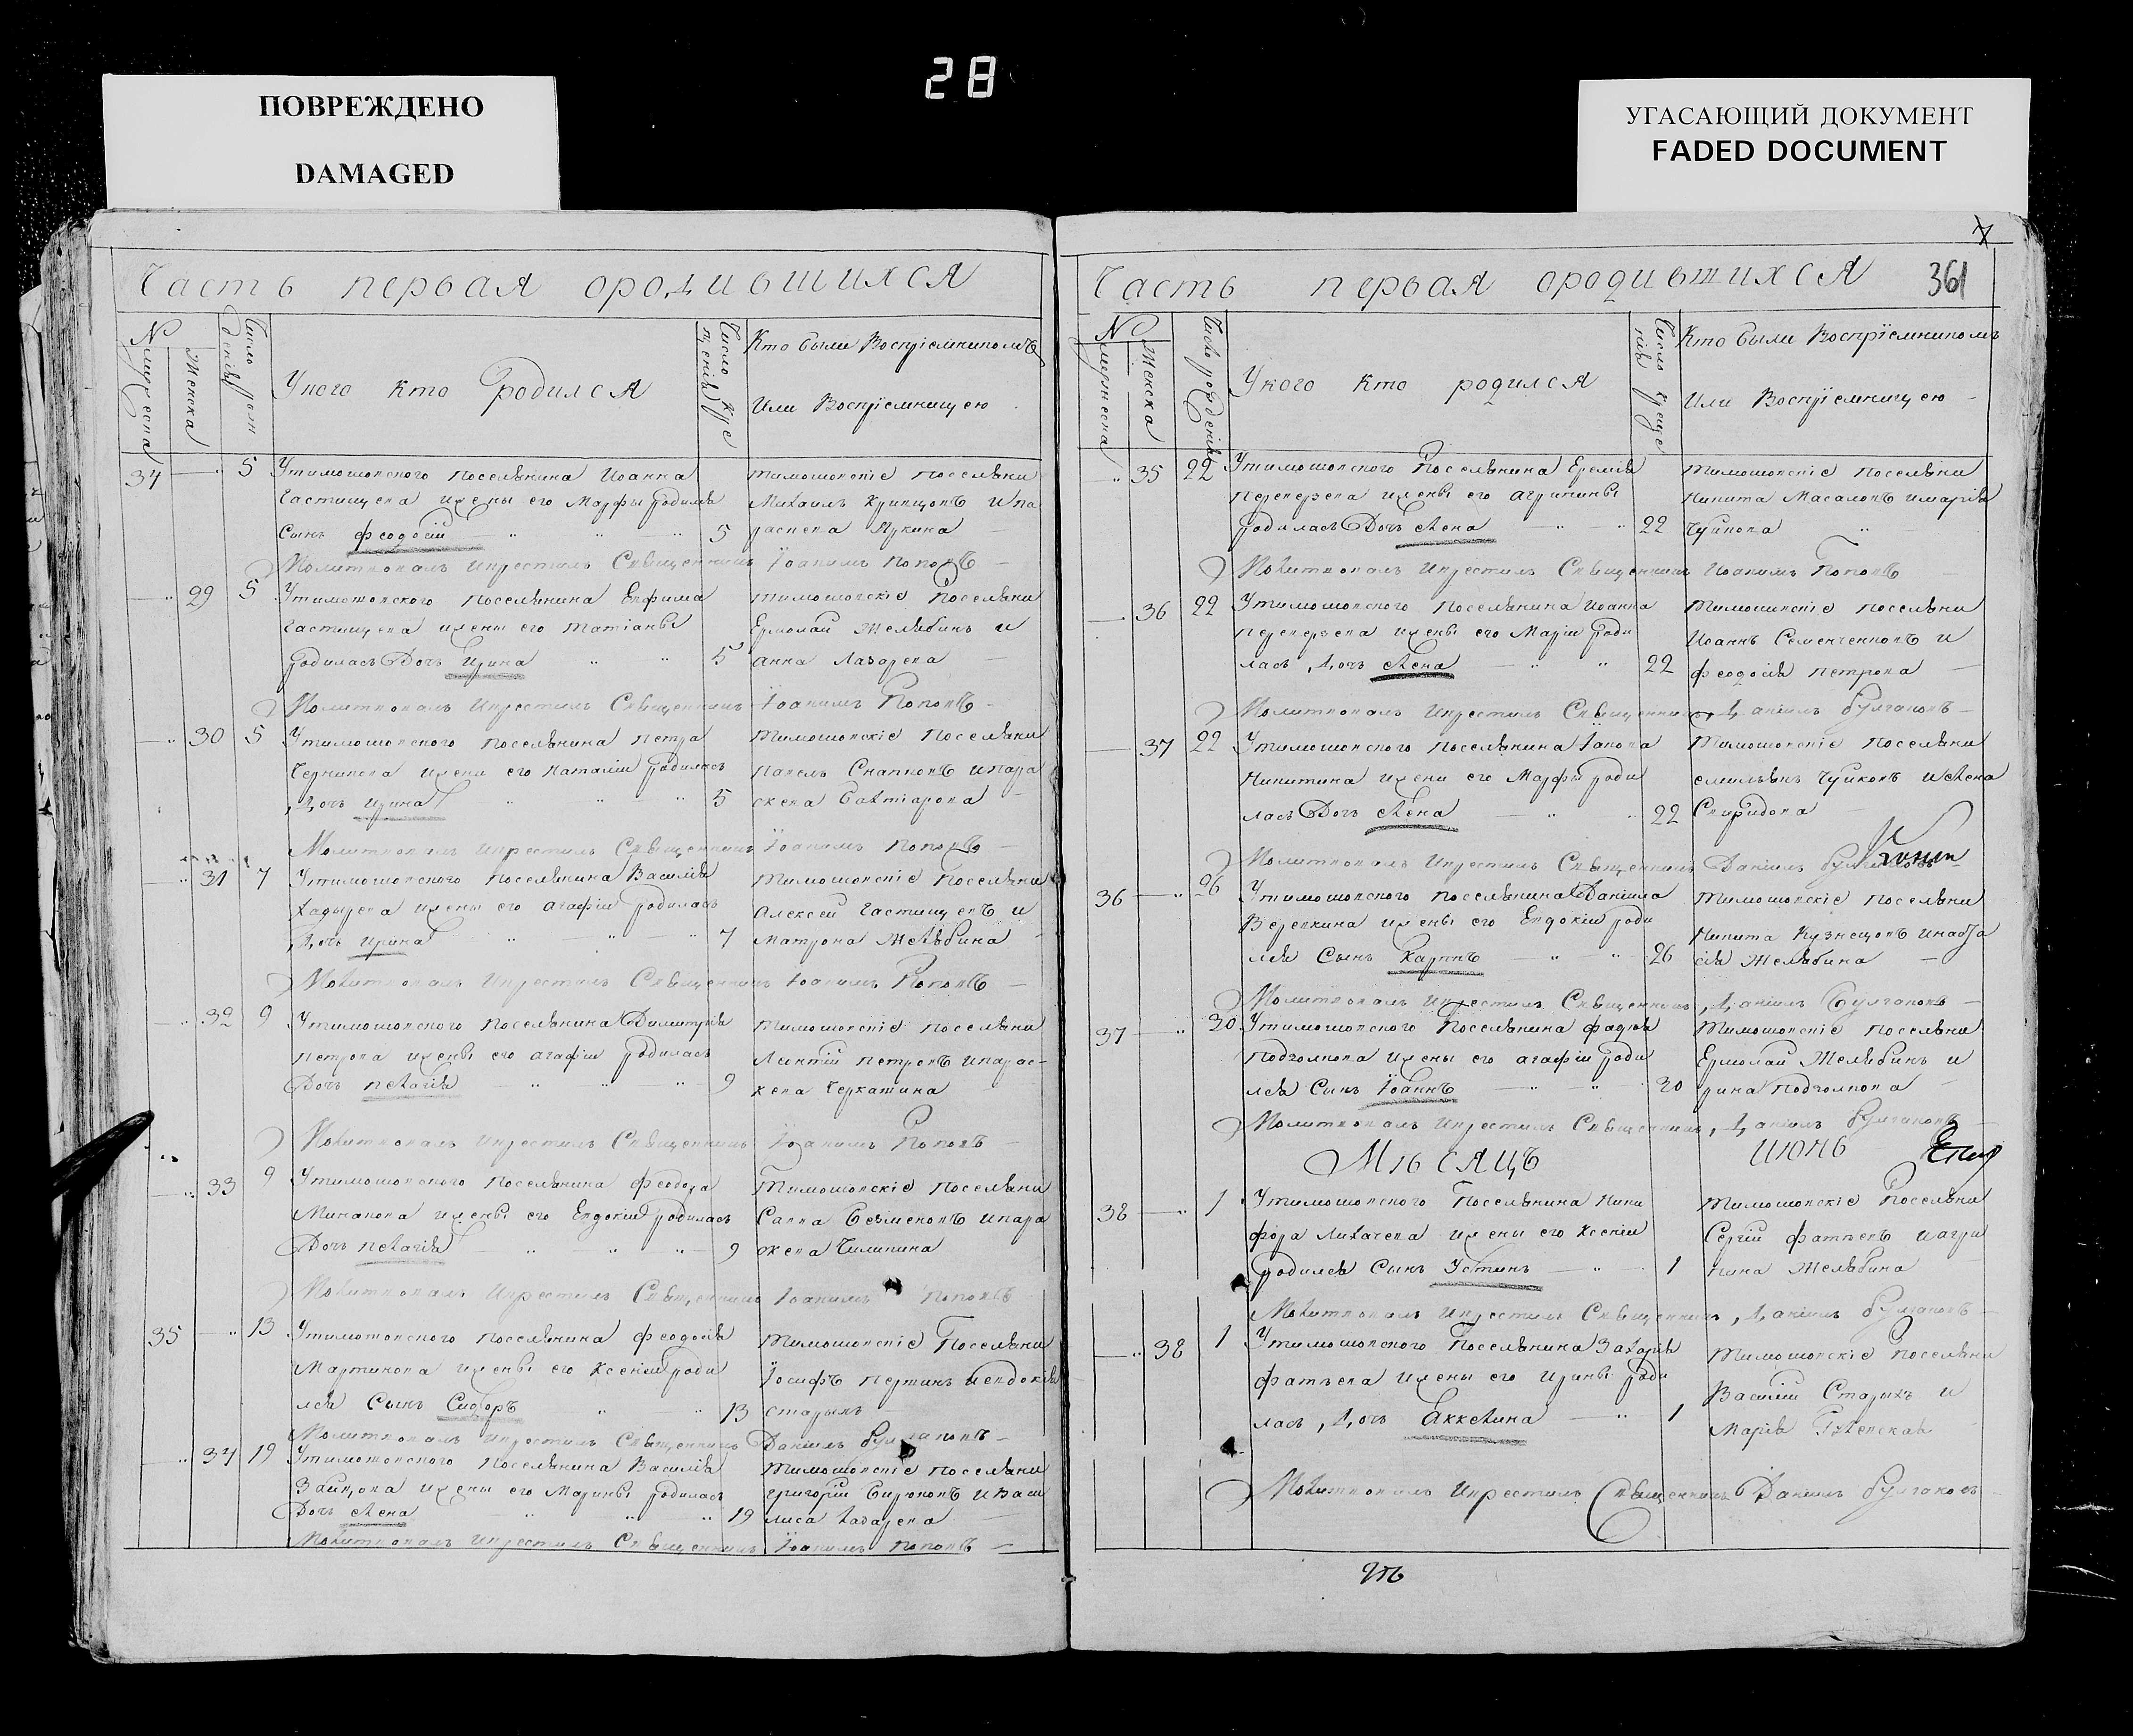 28
ПОВРЕЖДЕНО
DAMAGED
УГАСАЮЩИЙ ДОКУМЕНТ
FADED DOCUMENT
Часть первая ородившихся
№
Мужеска
Женска
Число рож
денія
Укого кто родился
Число кре
щенія
Кто были Воспріемникомъ
Или Воспріемницею
34 5 Утимошовского поселянина Иоанна
Гастищева ижены его Марфы родился
Сынъ феодосій 5
тимошовскіе поселяни
Михаилъ Кривцовъ ипа
раскева Лукина
Молитвовалъ икрестилъ Священникъ Іоакимъ Поповъ
29 5 Утимошовского поселянина Евфима
Гастищева ижены его татіаны
родилась Дочь Ирина 5
тимошовскіе Поселяни
Ермолай Желябинъ и
анна Лазарева
Молитвовалъ икрестилъ Священникъ Іоакимъ Поповъ
30 5 Утимошовского поселянина петра
ижены его наталіи родилась
Дочь ирина 5
тимошовскіе поселяни
павелъ ипара
скева
Молитвовалъ икрестилъ Священникъ Іоакимъ Поповъ
31 7 Утимошовского поселянина Василія
ижены его агафіи родилась
Дочь ирина 7
тимошовскіе Поселяни
Алексей Гастищевъ и
матрона Желябина
Молитвовалъ икрестилъ Священникъ Іоакимъ Поповъ
32 9 Утимошовского поселянина Димитрія
петрова ижены его агафіи родилась
Дочь пелагія 9
тимошовскіе поселяни
петровъ ипарас-
кева Черкашина
Молитвовалъ икрестилъ Священникъ Іоакимъ Поповъ
33 9 Утимошовского поселянина феодора
Минакова ижены его Евдокіи родилась
Дочь пелагія 9
тимошовскіе поселяни
Савва Безменовъ ипара
скева
Молитвовалъ икрестилъ Священникъ Іоакимъ поповъ
35 13 Утимошовского поселянина феодосія
Мартинова ижены его Ксеніи роди
лся Сынъ Сидоръ 13
тимошовскіе Поселяни
Іосифъ иевдокія
старыхъ
Молитвовалъ икрестилъ Священникъ Даніилъ булгаковъ
34 19 Утимошовского поселянина Василія
Зайцова ижены его Марины родилась
Дочь елена 19
тимошовскіе поселяни
григорій Бирюковъ иВаси
лиса
Молитвовалъ икрестилъ Священникъ Іоакимъ поповъ
7
361
Часть первая ородившихся
№
Мужеска
Женска
Число рожденія
Укого кто родился
Число креще
нія
Кто были Воспріемникомъ
Или Воспріемницею
35 22 Утимошовского Поселянина Еремія
переверзева ижены его агрипины
родилась Дочь елена 22
тимошовскіе поселяни
никита Масаловъ имарія
Чуйкова
Молитвовалъ икрестилъ Священникъ Иоакимъ Поповъ
36 22 Утимошовского поселянина иоанна
переверзева ижены его Маріи роди
лась Дочь елена 22
тимошовскіе поселяни
Иоаннъ Семенченковъ и
феодосія петрова
Молитвовалъ икрестилъ Священникъ Даніилъ булгаковъ
37 22 Утимошовского поселянина Іакова
Никитина ижены его Марфы роди
лась Дочь елена 22
тимошовскіе поселяни
емиліянъ Чуйковъ иелена
Спиридова
Молитвовалъ икрестилъ Священникъ Даніилъ булгаковъ
36 26 Утимошовского поселянина Даніила
Веревкина ижены его Евдокіи роди
лся Сынъ Карпъ 26
тимошовскіе поселяни
Никита Кузнецовъ инаста
сія Желябина
Молитвовалъ икрестилъ Священникъ Даніилъ Булгаковъ
37 30 Утимошовского Поселянина фадея
подгоднова ижены его агафіи роди
лся Сынъ Іоаннъ 30
тимошовскіе поселяни
Ермолай Желябинъ и
рина
Молитвовалъ икрестилъ Священникъ Даніилъ булгаковъ
Мѣсяцъ ИЮНЬ
38 1 Утимошовского Поселянина Ники
фора Лихачева ижены его Ксеніи
родился Сынъ Устинъ 1
тимошовскіе Поселяни
Сергій фатѣевъ иагри
пина Желябина
Молитвовалъ икрестилъ Священникъ Даніилъ булгаковъ
38 1 Утимошовского Поселянина Захарія
фатѣева ижены его Ирины роди
лась Дочь Аккелина 1
тимошовскіе поселяни
Василій Старихъ и
Марія
Молитвовалъ икрестилъ Священникъ Даніилъ булгаковъ